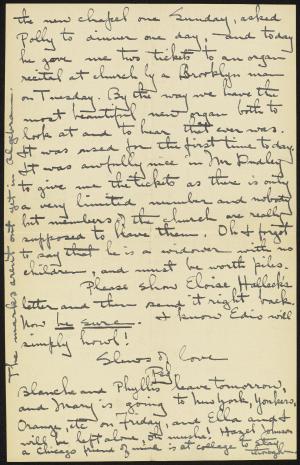 the new chapel one Sunday, asked
Polly to dinner one day, and today
he gave me two tickets to an organ
recital at church by a Brooklyn man
on Tuesday. By the way we have the
most beautiful new organ both to
look at and to hear that ever was.
It was used for the first time today.
It was awfully nice in Mr Dudley
to give me the tickets as there is only
a very limited number and nobody
but members of the church are really
supposed to have them. Oh I forgot
to say that he is a widower with no
children, and must be worth piles.
Please show Eloise Hallock's
letter and then send it right back
Now be sure. I know Edis will
simply howl!
Slews of love
Blanche and Phyllis leave tomorrow,
and Mary is going to New York, Yonkers,
Orange, etc on Friday, and Ella and I
will be left alone, oh musha! Hazel Johnson
a Chicago friend of mine is at college to stay
through
The marks aren't out yet in algebra.